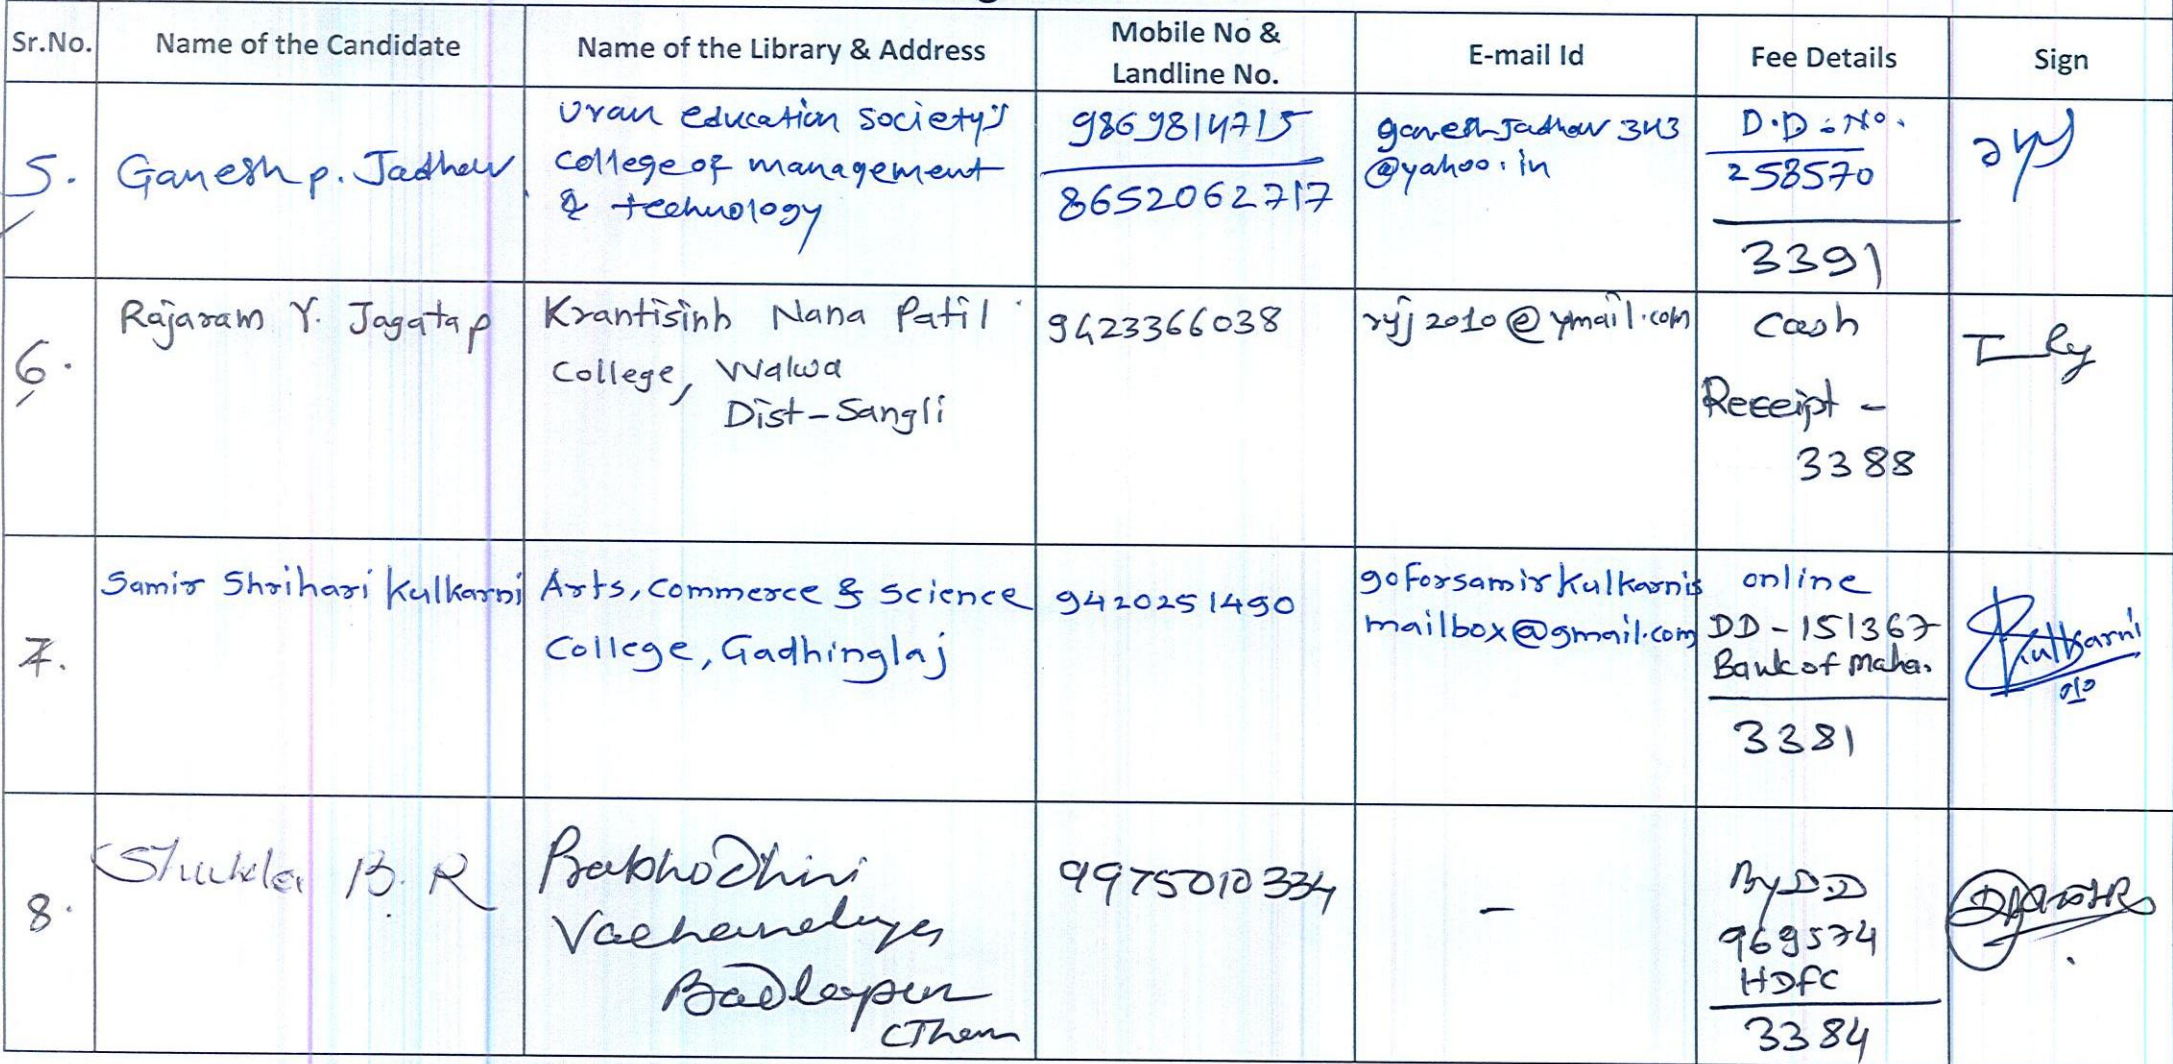 Sr.No. Name of the Candidate Name of the Library & Address Mobile No & Landline No. E-mail Id Fee Details Sign
5. Ganesh p. Jadhav
Uran education society's
college of management
& technology
9869814715
8652062717
ganeshjadhav343
@yahoo.in
D.D.No.
258570
3391
6. Rajaram Y. Jagatap
Krantisinh Nana Patil
College, Walwa
Dist-Sangli
9423366038
ryj2010@ymail.com
Cash
Receipt -
3388
7. Samir Shrihari Kulkarni
Arts, Commerce & Science
College, Gadhinglaj
9420251490
goforsamirkulkarnis
mailbox@gmail.com
online
DD-151367
Bank of Maha.
3381
Kulkarni
8. Shukla B. R
Vachanalaya
Badlapur
9975010334
-
By DD
969574
HDFC
3384